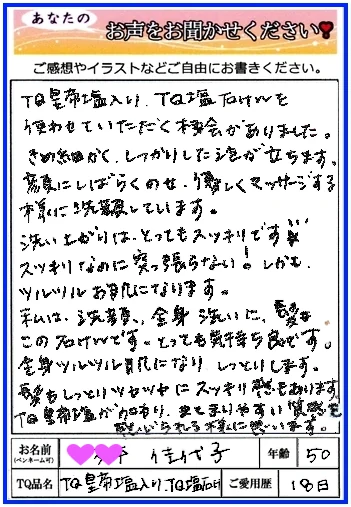 あなたの
お声をお聞かせください
ご感想やイラストなどご自由にお書きください。
TQ皇帝塩入り、TQ塩石けんを
使わせていただく機会がありました。
きめ細かく、しっかりした泡が立ちます。
顔にしばらくのせ、優しくマッサージする
様に洗顔しています。
洗い上がりは、とってもスッキリです
スッキリなのに突っ張らない！しかも、
ツルツルお肌になります。
私は、洗顔、全身洗いに、髪も
この石けんです。とっても気持ち良です。
全身ツルツル肌になり しっとりします。
髪もしっとりツヤツヤにスッキリ感もあります。
TQ皇帝塩が まとまりやすい 質感を
感じられる様に思います。
お名前
(ペンネーム可)
佳代子
年齢
50
TQ品名
TQ皇帝塩入り、TQ塩石け
ご愛用歴
18日